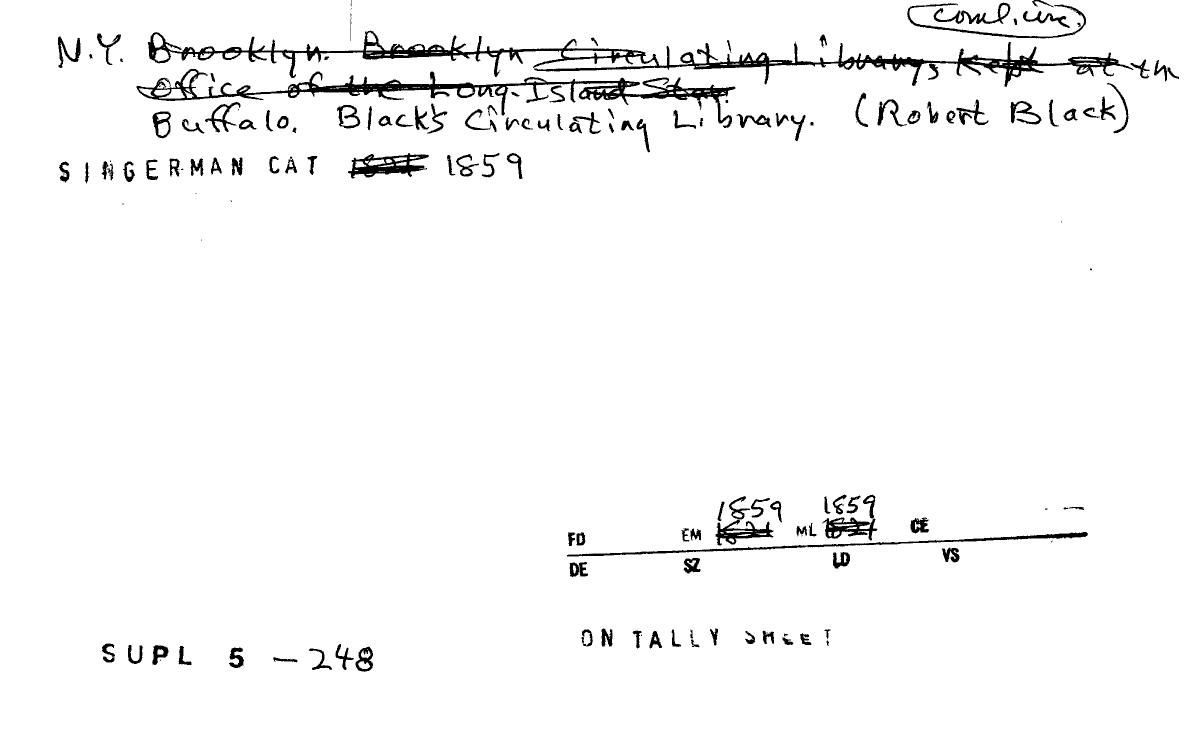 coml. circ.
N.Y. Brooklyn. Brooklyn Circulating Library, Kept at the
office of the Long-Island Star.
Buffalo. Black's Circulating Library. (Robert Black)
SINGERMAN CAT 1821 1859
1859 1859
FD EM 1821 ML 1821 CE
DE SZ LD VS
ON TALLY SHEET
SUPL 5 - 248